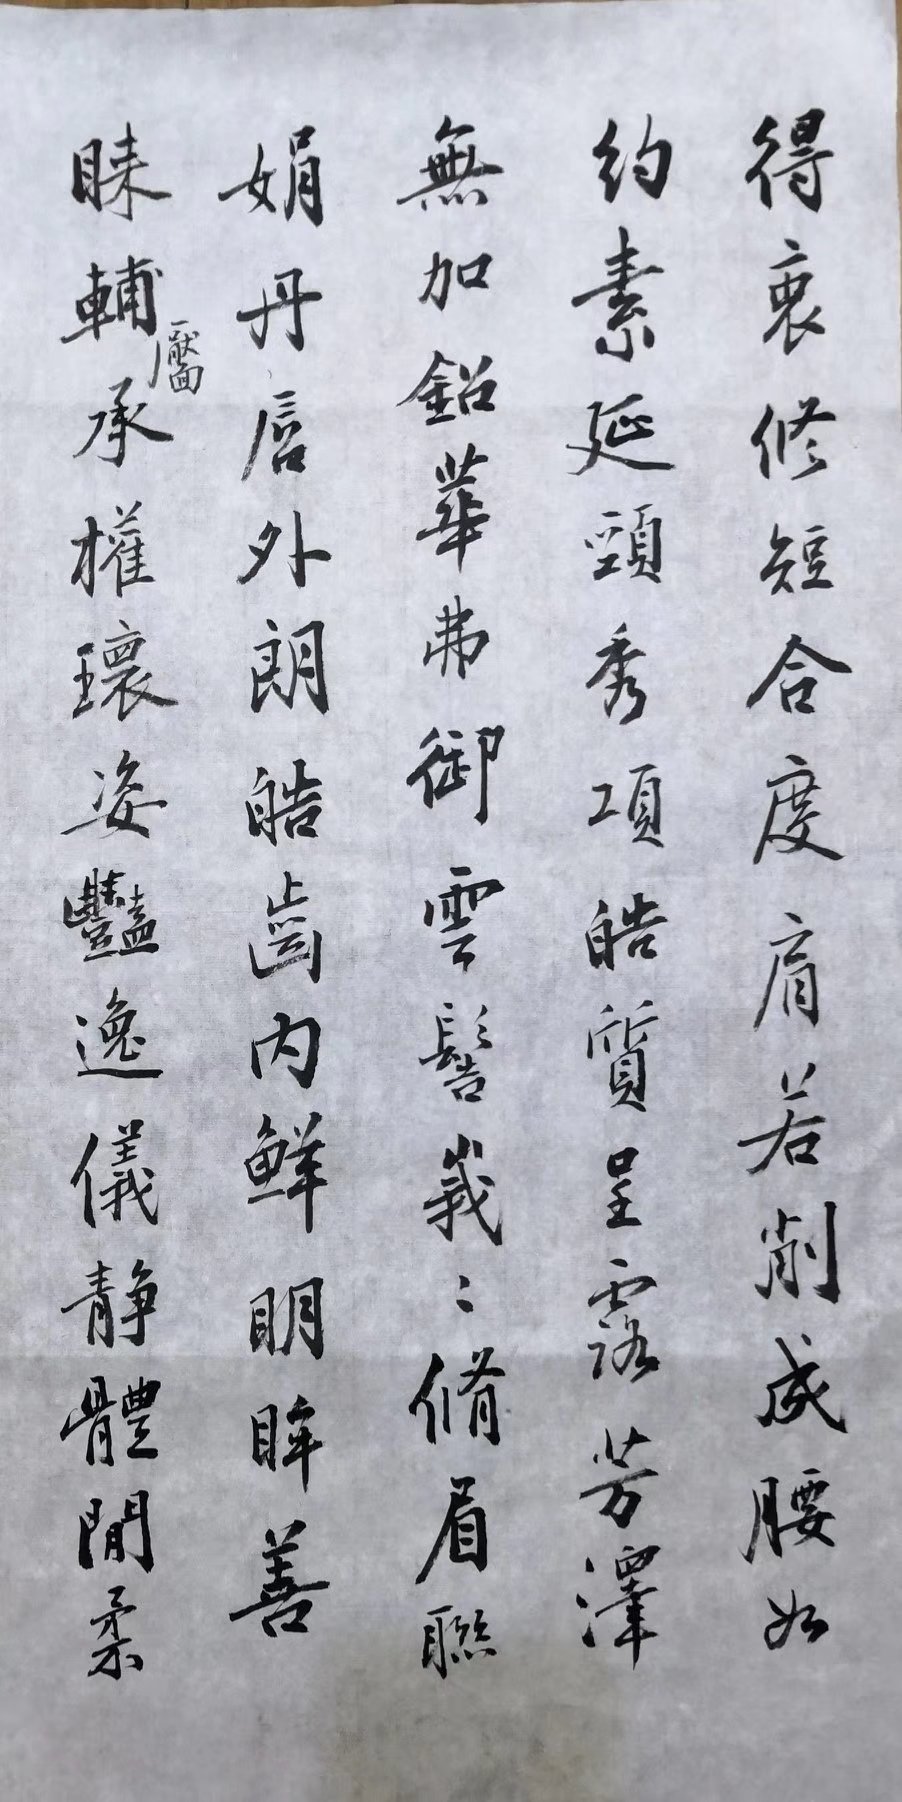 得衷修短合度肩若削成腰如
約素延頸秀項皓質呈露芳澤
無加鉛華弗御雲髻峩〻脩眉聯
娟丹唇外朗皓齒内鮮明眸善
睐輔靨承權瓌姿豔逸儀静體閒柔